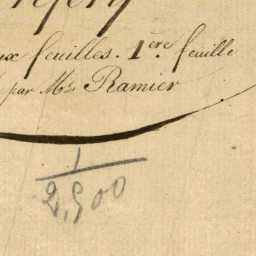 feuilles. 1.ere feuille
par Mr. Ramier
1
2,500